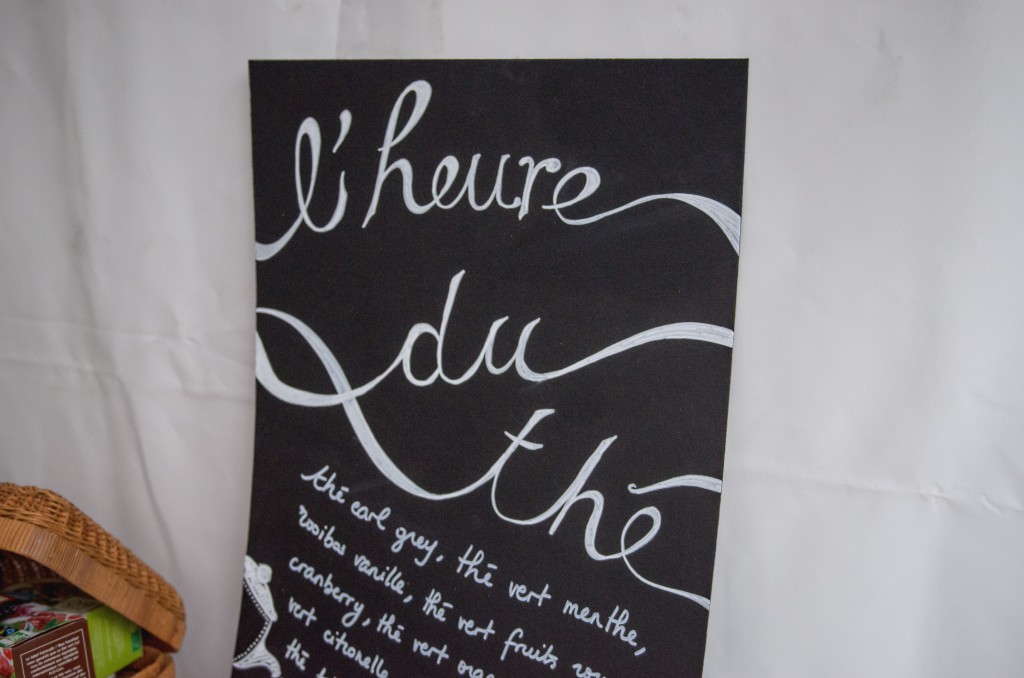 l'heure
du
thé
thé earl grey, thé vert menthe,
rooibos vanille, thé vert fruits
cranberry, thé vert
vert citronelle
thé